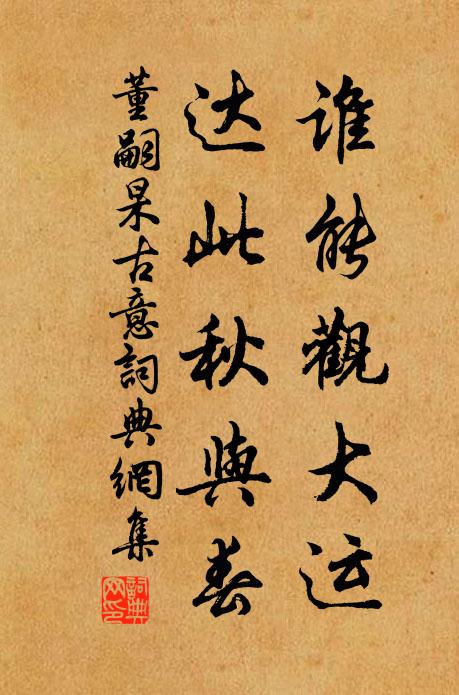 谁能觀大运
达此秋與春
董嗣杲古意詞典網集
詞典網印